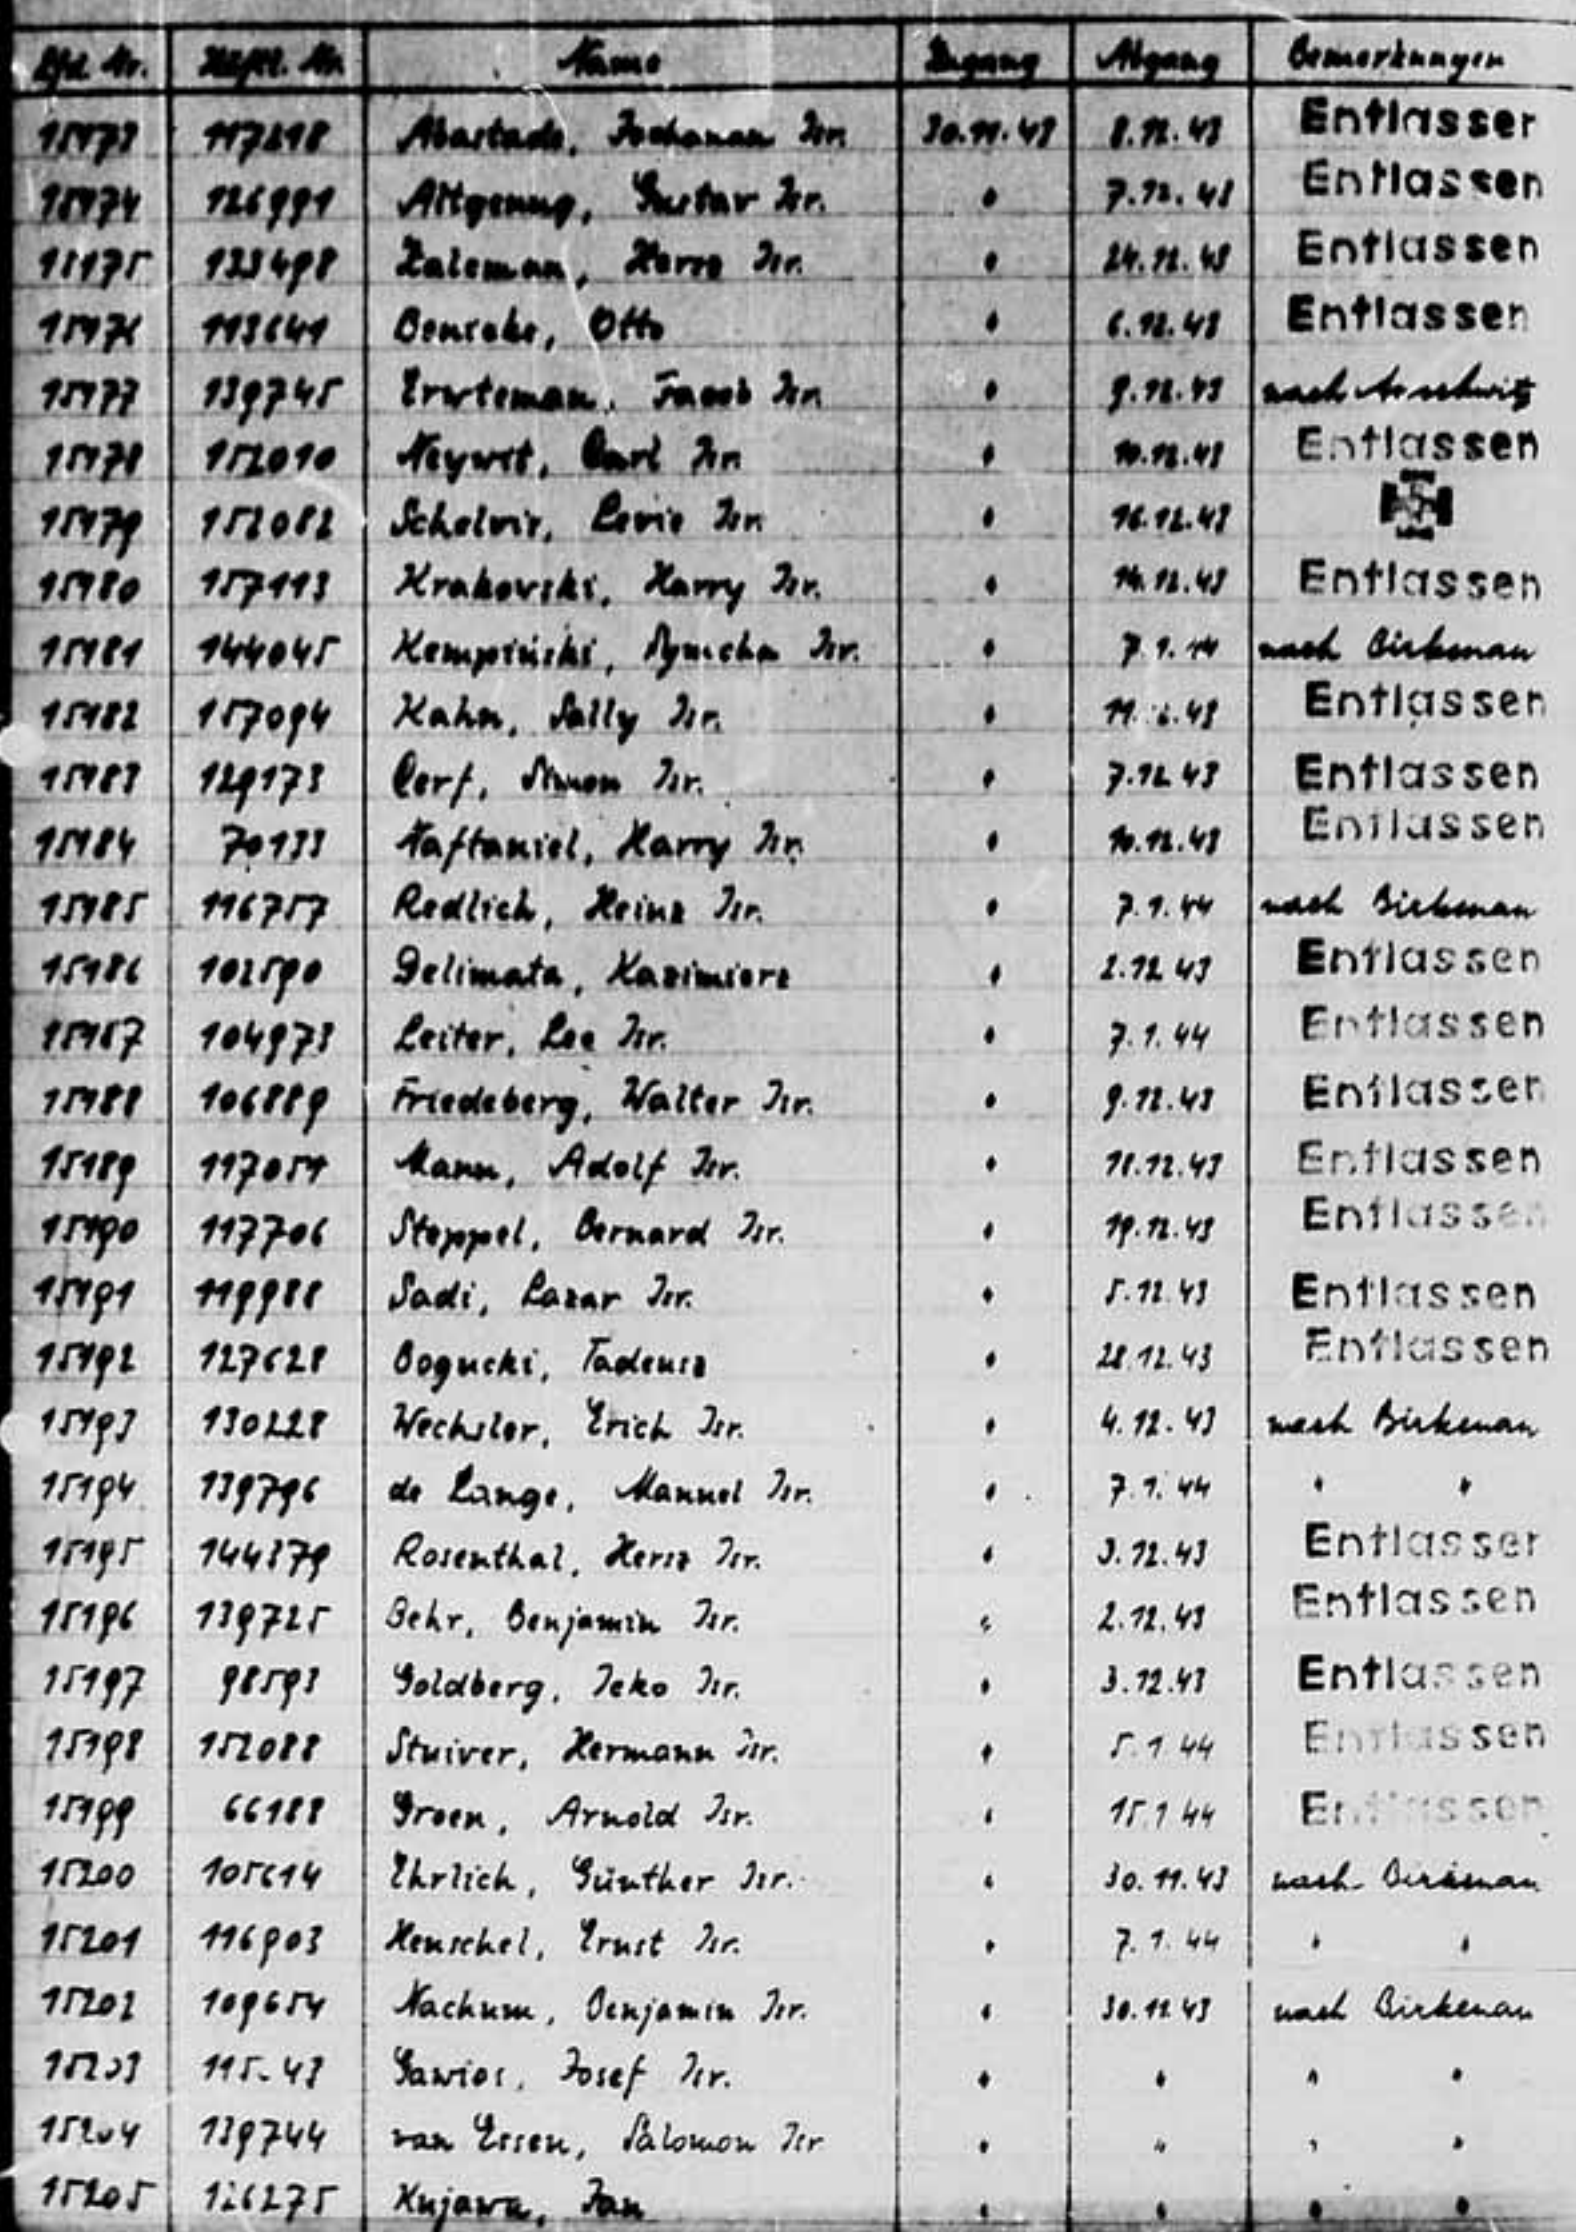 Lfd. Nr. Häftl. Nr. Name Zugang Abgang Bemerkungen
15173 117218 Isr. 30.11.43 8.12.43 Entlassen
15174 126991 Gustav Isr. " 7.12.43 Entlassen
15175 133498 Isr. " 24.12.43 Entlassen
15176 113641 Otto " 6.12.43 Entlassen
15177 139745 Jacob Isr. " 9.12.43 nach Auschwitz
15178 152010 Neywit, Carl Isr. " 10.12.43 Entlassen
15179 152082 Schelvis, Levie Isr. " 16.12.43
15180 157113 Krakovski, Harry Isr. " 14.12.43 Entlassen
15181 144045 Kempiński, Symcha Isr. " 7.1.44 nach Birkenau
15182 157094 Kahn, Sally Isr. " Entlassen
15183 129173 Cerf, Simon Isr. " 7.12.43 Entlassen
15184 70133 Naftaniel, Harry Isr. " 10.12.43 Entlassen
15185 116757 Redlich, Heinz Isr. " 7.1.44 nach Birkenau
15186 102590 Delimata, Kazimierz " 2.12.43 Entlassen
15187 104973 Leiter, Leo Isr. " 7.1.44 Entlassen
15188 106889 Friedeberg, Walter Isr. " 9.12.43 Entlassen
15189 117051 Mann, Adolf Isr. " 18.12.43 Entlassen
15190 117706 Steppel, Bernard Isr. " 19.12.43 Entlassen
15191 119988 Sadi, Lazar Isr. " 5.12.43 Entlassen
15192 127628 Bogucki, Tadeusz " 28.12.43 Entlassen
15193 130228 Wechsler, Erich Isr. " 4.12.43 nach Birkenau
15194 139796 de Lange, Manuel Isr. " 7.1.44 " "
15195 144379 Rosenthal, Hersz Isr. " 3.12.43 Entlassen
15196 139725 Behr, Benjamin Isr. " 2.12.43 Entlassen
15197 98593 Goldberg, Jeko Isr. " 3.12.43 Entlassen
15198 152088 Stuiver, Hermann Isr. " 5.1.44 Entlassen
15199 66188 Groen, Arnold Isr. " 15.1.44 Entlassen
15200 105614 Ehrlich, Günther Isr. " 30.11.43 nach Birkenau
15201 116903 Henschel, Ernst Isr. " 7.1.44 " "
15202 109654 Nachum, Benjamin Isr. " 30.11.43 nach Birkenau
15203 Josef Isr. " " " "
15204 139744 van Essen, Salomon Isr " " " "
15205 126275 Kujawa, Jan " " " "